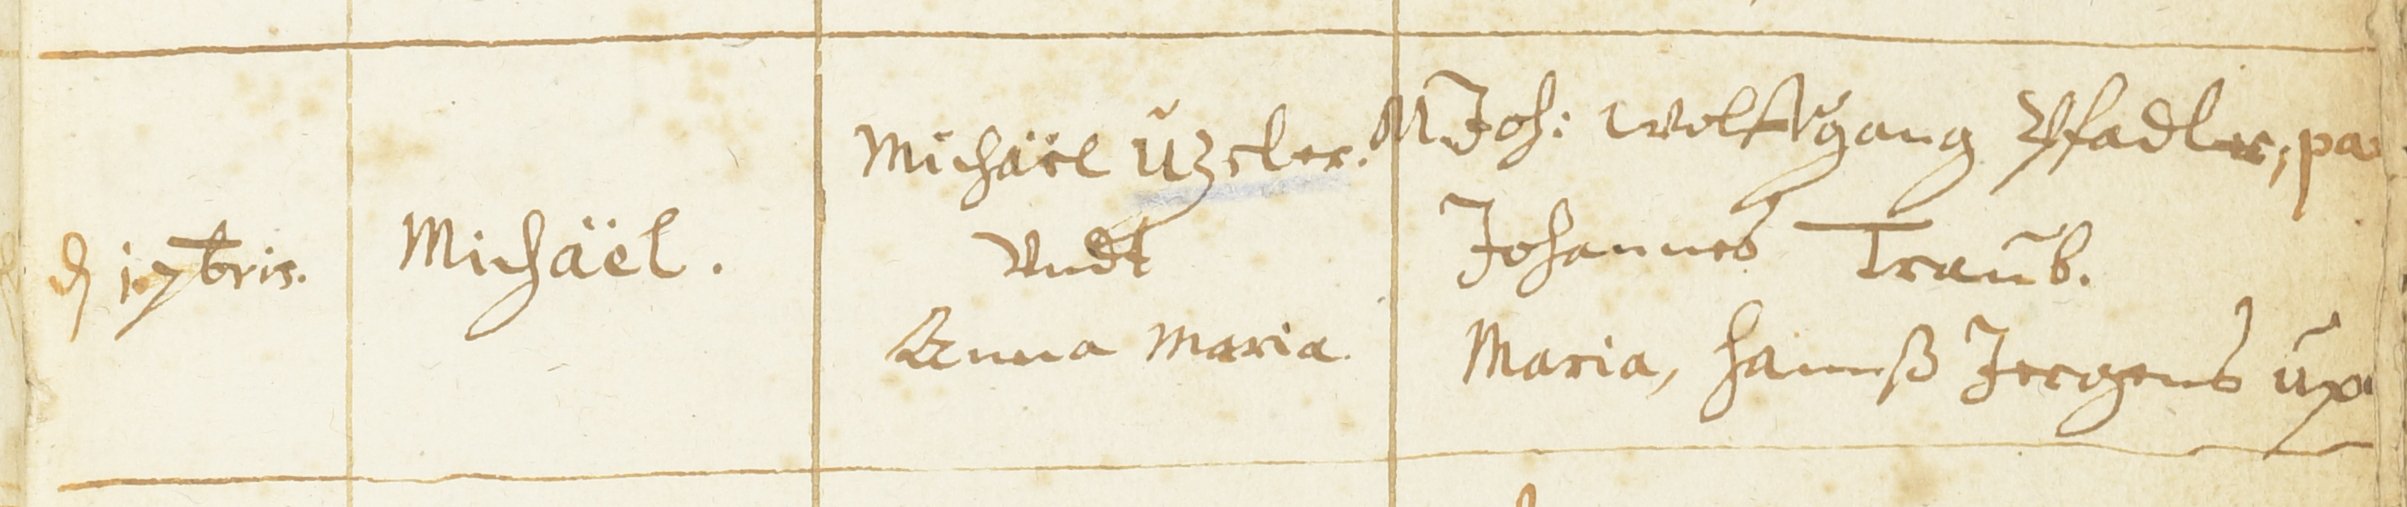 d 1 7bris.
Michaël.
Michaël Ůzeler.
Vndt
Anna Maria.
M Joh: Wolfgang Pfadler, pa
Johannes Traub.
Maria, Hannß Jergens ux